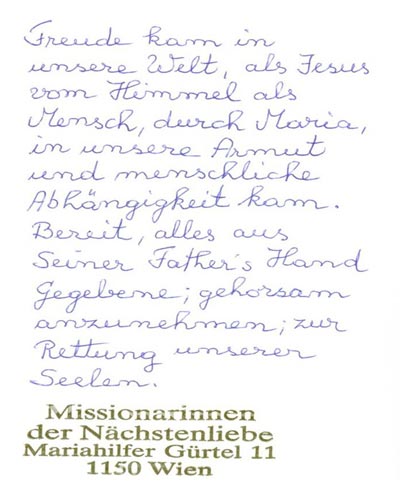 Freude kam in
unsere Welt, als Jesus
vom Himmel als
Mensch, durch Maria,
in unsere Armut
und menschliche
Abhängigkeit kam.
Bereit, alles aus
Seiner Father's Hand
Gegebene; gehorsam
anzunehmen; zur
Rettung unserer
Seelen.
Missionarinnen
der Nächstenliebe
Mariahilfer Gürtel 11
1150 Wien